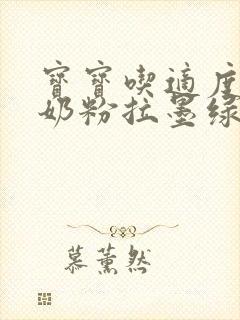 寶寶喫適度
奶粉拉墨綠
慕薰然